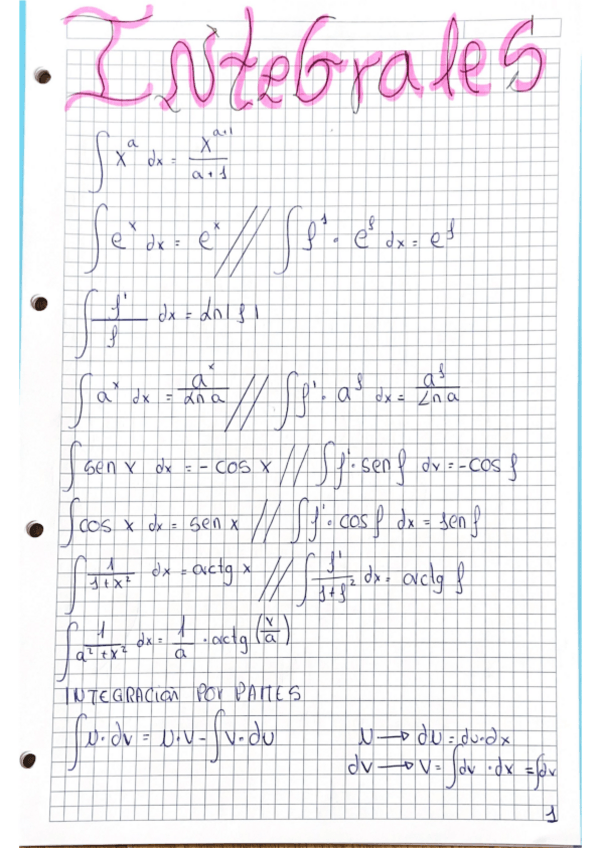 Integrales
∫ x^a dx = x^(a+1) / (a+1)
∫ e^x dx = e^x // ∫ f' · e^f dx = e^f
∫ f'/f dx = Ln|f|
∫ a^x dx = a^x / Ln a // ∫ f' · a^f dx = a^f / Ln a
∫ sen x dx = -cos x // ∫ f' · sen f dx = -cos f
∫ cos x dx = sen x // ∫ f' · cos f dx = sen f
∫ 1/(1+x²) dx = arctg x // ∫ f'/(1+f²) dx = arctg f
∫ 1/(a²+x²) dx = 1/a · arctg (x/a)
INTEGRACIÓN POR PARTES
∫ u · dv = u · v - ∫ v · du
u → du = du · dx
dv → v = ∫ dv · dx = ∫ dv
1